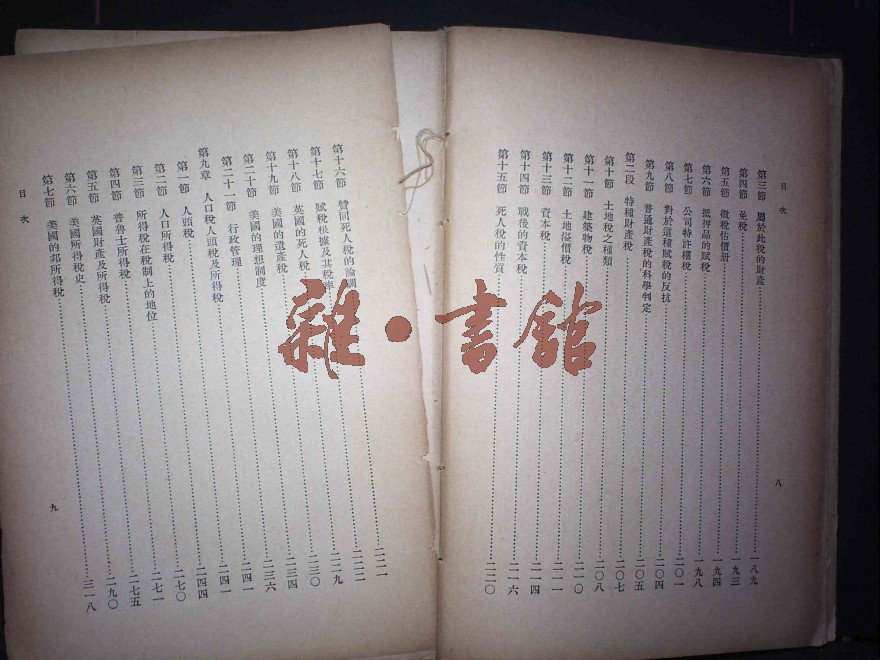 目次
第三節 屬於此稅的財產 一八九
第四節 免稅 一九三
第五節 徵稅估價册 一九四
第六節 抵押品的賦稅 一九八
第七節 公司特許權稅 二〇一
第八節 對於這種賦稅的反抗 二〇四
第九節 普通財產稅的科學判定 二〇五
第二段 特種財產稅 二〇七
第十節 土地稅之種類 二〇八
第十一節 建築物稅 二一〇
第十二節 土地溢價稅 二一一
第十三節 資本稅 二一四
第十四節 戰後的資本稅 二一六
第十五節 死人稅的性質 二二〇
八
第十六節 贊同死人稅的論調 二二一
第十七節 賦稅根據及其稅率 二二二
第十八節 英國的死人稅 二二九
第十九節 美國的遺產稅 二三〇
第二十節 美國的理想制度 二三四
第二十一節 行政管理 二三六
第九章 人口稅人頭稅及所得稅 二四一
第一節 人頭稅 二四一
第二節 人口所得稅 二四四
第三節 所得稅在稅制上的地位 二七〇
第四節 普魯士所得稅 二七一
第五節 英國財產及所得稅 二七五
第六節 美國所得稅史 二九〇
第七節 美國的邦所得稅 三一八
目次
九
雜·書館